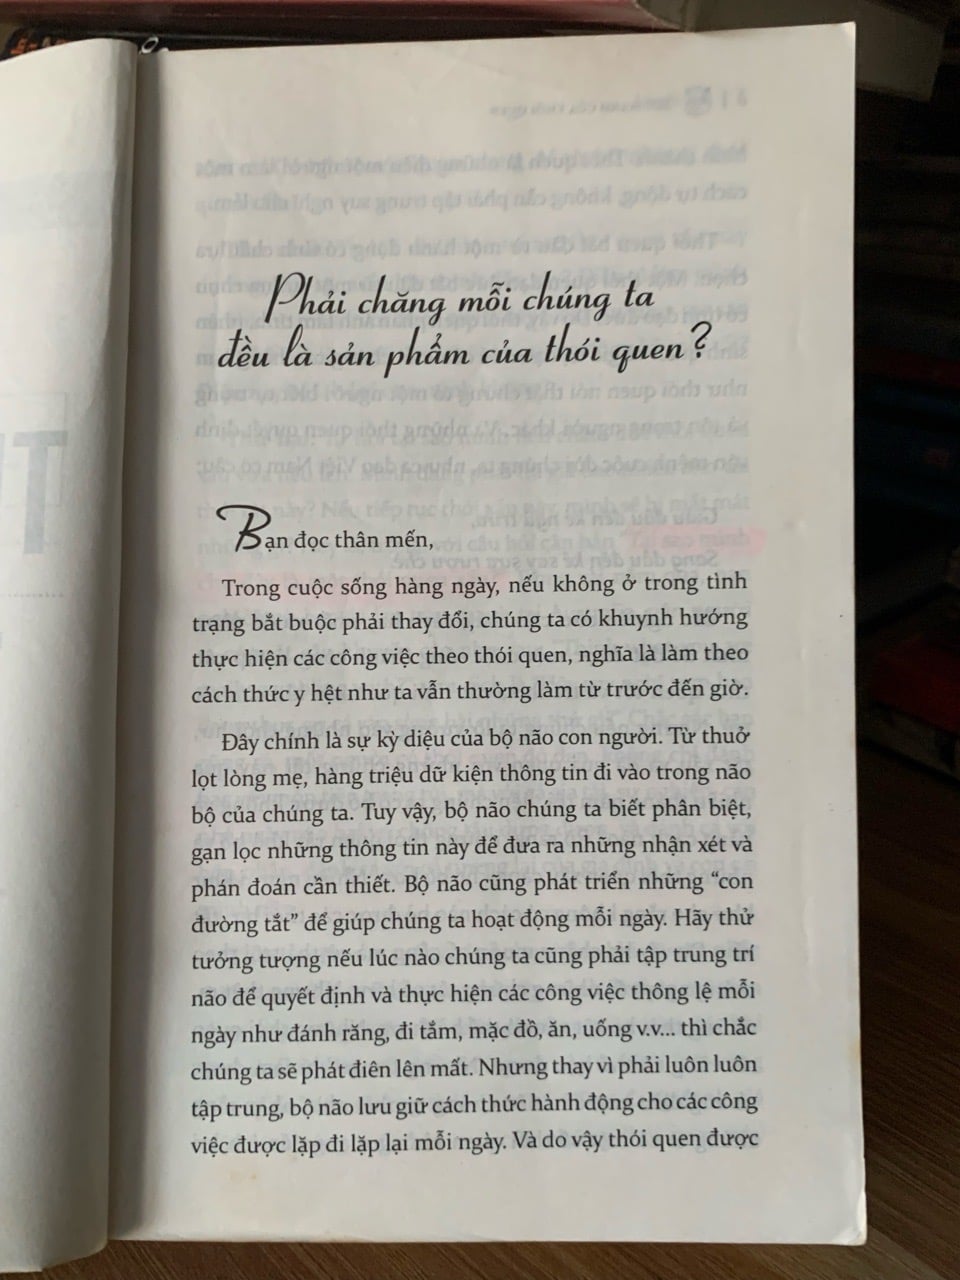 Phải chăng mỗi chúng ta
đều là sản phẩm của thói quen?
Bạn đọc thân mến,
Trong cuộc sống hàng ngày, nếu không ở trong tình
trạng bắt buộc phải thay đổi, chúng ta có khuynh hướng
thực hiện các công việc theo thói quen, nghĩa là làm theo
cách thức y hệt như ta vẫn thường làm từ trước đến giờ.
Đây chính là sự kỳ diệu của bộ não con người. Từ thuở
lọt lòng mẹ, hàng triệu dữ kiện thông tin đi vào trong não
bộ của chúng ta. Tuy vậy, bộ não chúng ta biết phân biệt,
gạn lọc những thông tin này để đưa ra những nhận xét và
phán đoán cần thiết. Bộ não cũng phát triển những “con
đường tắt” để giúp chúng ta hoạt động mỗi ngày. Hãy thử
tưởng tượng nếu lúc nào chúng ta cũng phải tập trung trí
não để quyết định và thực hiện các công việc thông lệ mỗi
ngày như đánh răng, đi tắm, mặc đồ, ăn, uống v.v... thì chắc
chúng ta sẽ phát điên lên mất. Nhưng thay vì phải luôn luôn
tập trung, bộ não lưu giữ cách thức hành động cho các công
việc được lặp đi lặp lại mỗi ngày. Và do vậy thói quen được